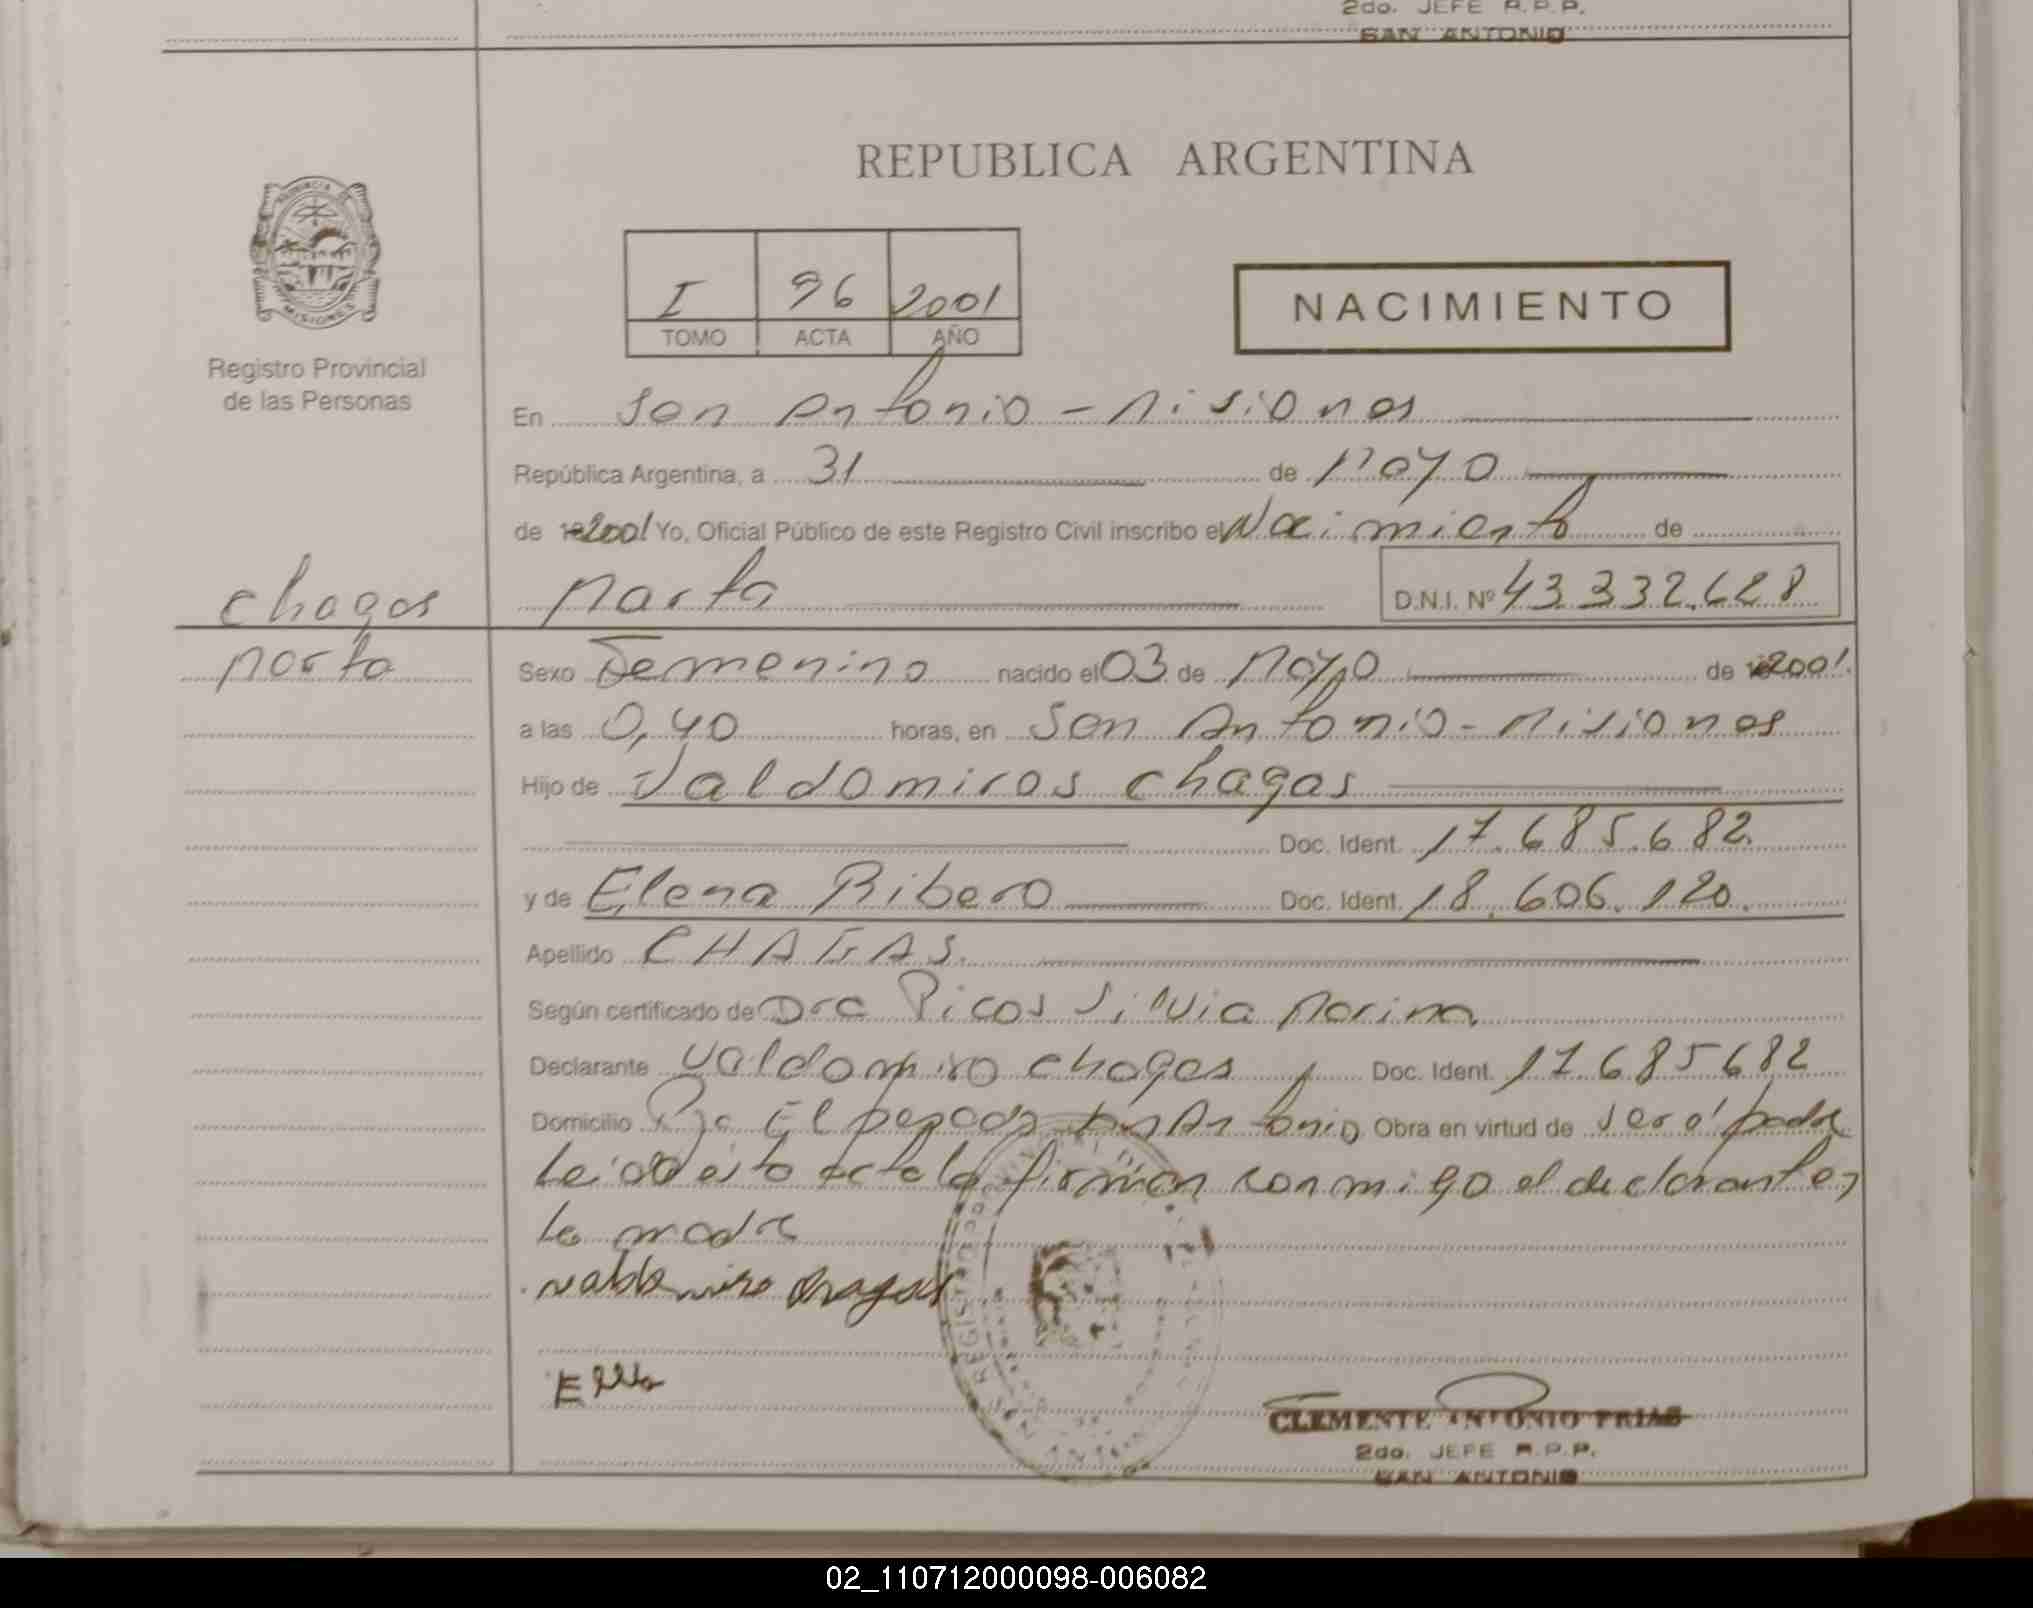 2do. JEFE R.P.P.
SAN ANTONIO
REPUBLICA ARGENTINA
PROVINCIA DE
MISIONES
Registro Provincial
de las Personas
I 96 2001
TOMO ACTA AÑO
NACIMIENTO
En San Antonio - Misiones
República Argentina, a 31 de Mayo
de 2001 Yo, Oficial Público de este Registro Civil inscribo el Nacimiento de
Chagas
Marta
Marta D.N.I. Nº 43.332.628
Sexo Femenino nacido el 03 de Mayo de 2001.
a las 0,40 horas, en San Antonio - Misiones
Hijo de Valdomiros Chagas
Doc. Ident. 17.685.682.
y de Elena Ribero Doc. Ident. 18.606.120.
Apellido CHAGAS.
Según certificado de Dra Picos Silvia Marina
Declarante Valdomiro Chagas Doc. Ident. 17.685682
Domicilio El San Antonio Obra en virtud de ser el padre
Leida esta acta la firman conmigo el declarante y
la madre
Valdomiro Chagas
CLEMENTE ANTONIO FRIAS
2do. JEFE R.P.P.
SAN ANTONIO
02_110712000098-006082